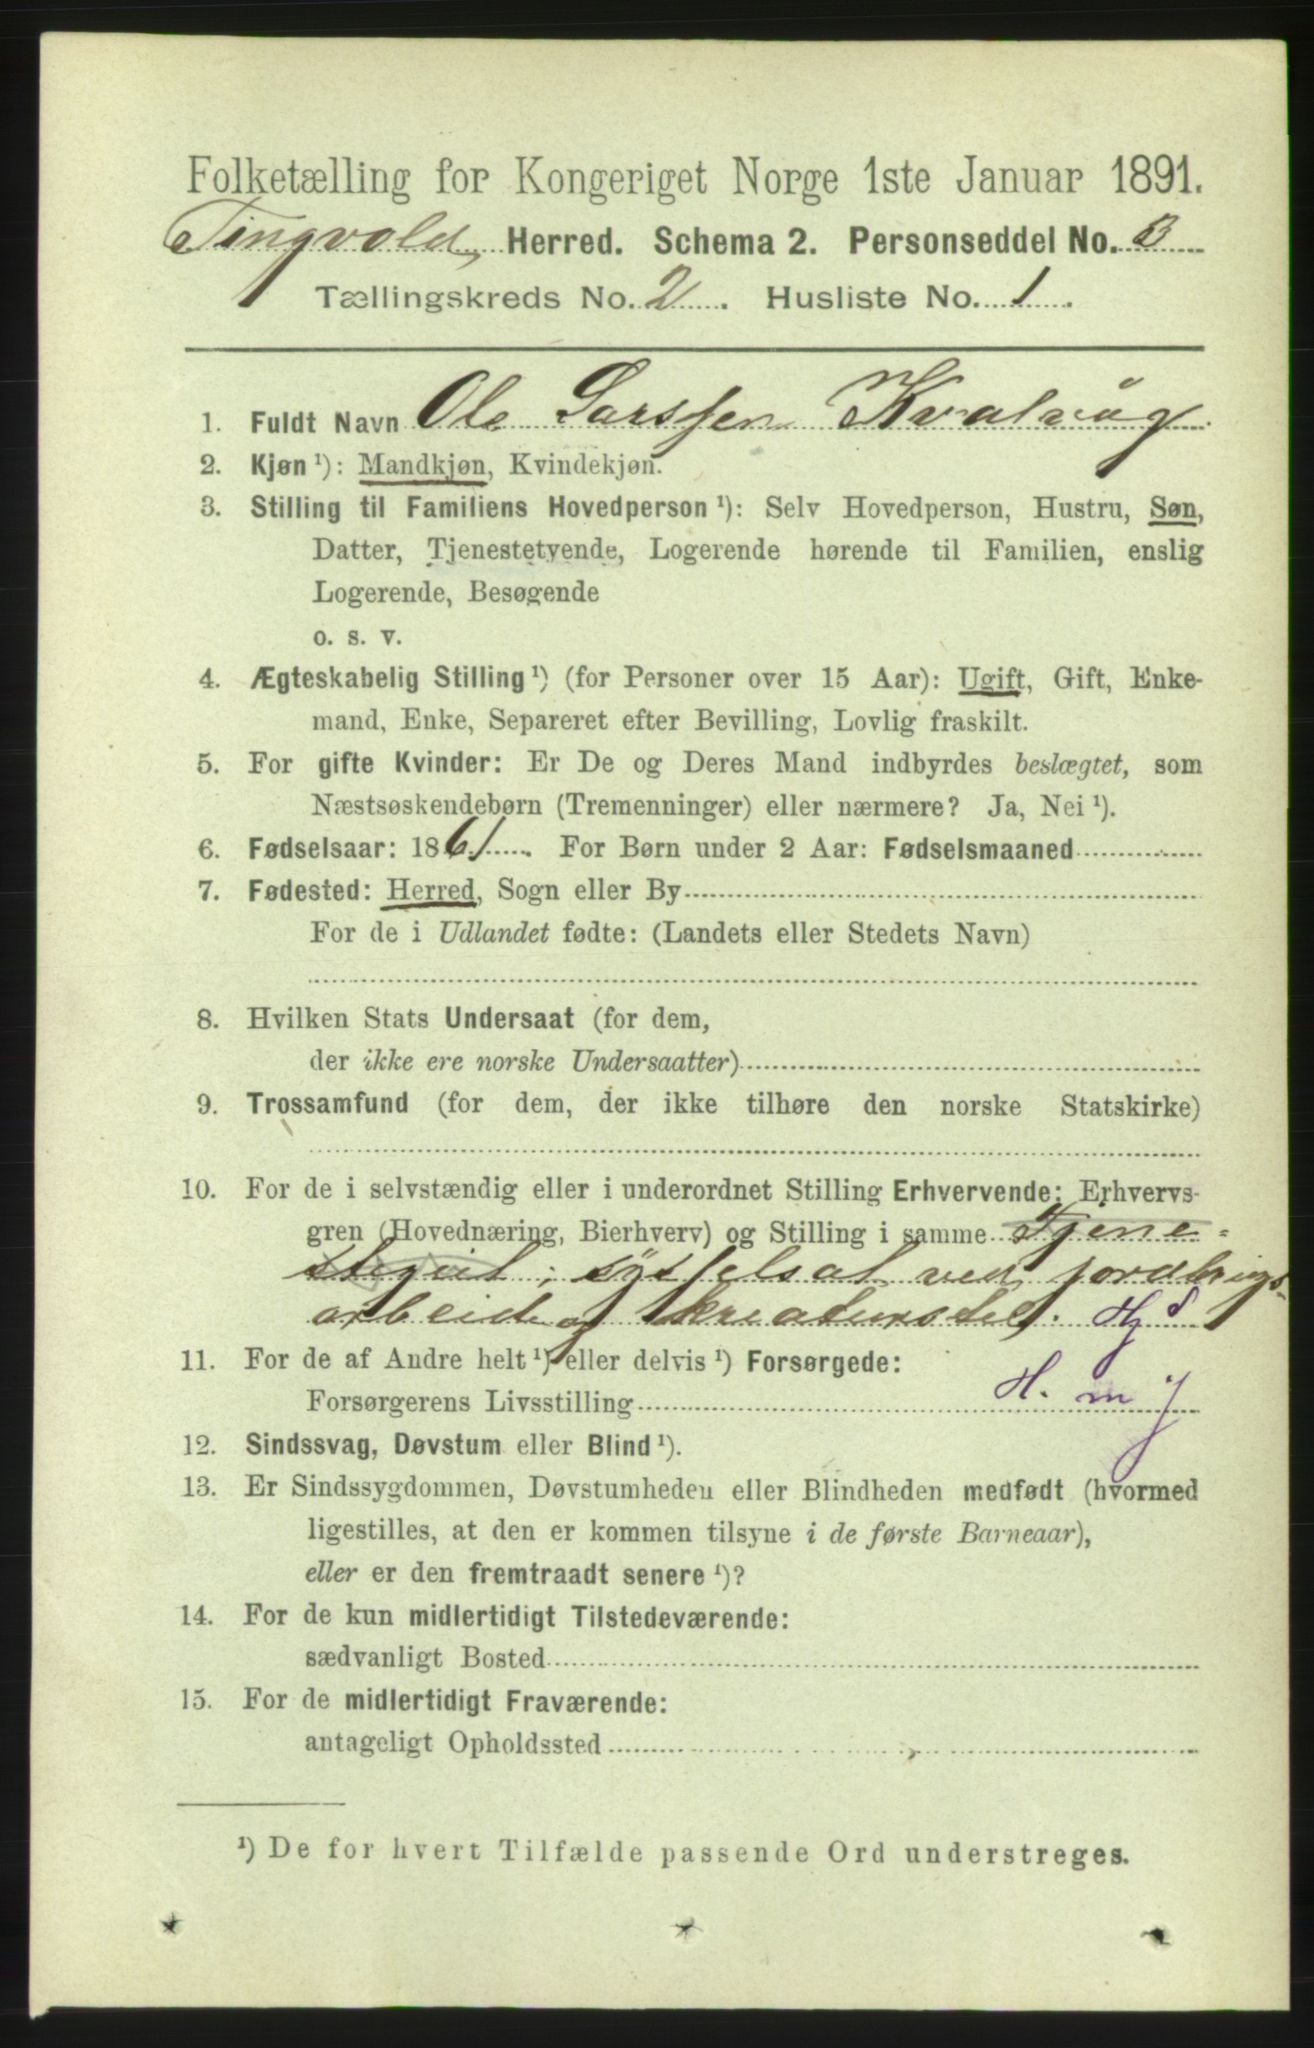 Folketælling for Kongeriget Norge 1ste Januar 1891.
Tingvold Herred. Schema 2. Personseddel No. 3
Tællingskreds No. 2. Husliste No. 1.
1. Fuldt Navn Ole Larssen Kvalvåg
2. Kjøn ¹): Mandkjøn, Kvindekjøn.
3. Stilling til Familiens Hovedperson ¹): Selv Hovedperson, Hustru, Søn,
Datter, Tjenestetyende, Logerende hørende til Familien, enslig
Logerende, Besøgende
o. s. v.
4. Ægteskabelig Stilling ¹) (for Personer over 15 Aar): Ugift, Gift, Enke-
mand, Enke, Separeret efter Bevilling, Lovlig fraskilt.
5. For gifte Kvinder: Er De og Deres Mand indbyrdes beslægtet, som
Næstsøskendebørn (Tremenninger) eller nærmere? Ja, Nei ¹).
6. Fødselsaar: 1861. For Børn under 2 Aar: Fødselsmaaned
7. Fødested: Herred, Sogn eller By
For de i Udlandet fødte: (Landets eller Stedets Navn)
8. Hvilken Stats Undersaat (for dem,
der ikke ere norske Undersaatter)
9. Trossamfund (for dem, der ikke tilhøre den norske Statskirke)
10. For de i selvstændig eller i underordnet Stilling Erhvervende: Erhvervs-
gren (Hovednæring, Bierhverv) og Stilling i samme Tjene-
stegut; sysselsat ved jordbrugs-
arbeide og kreaturstel. Hj S
11. For de af Andre helt ¹) eller delvis ¹) Forsørgede:
Forsørgerens Livsstilling H. m j
12. Sindssvag, Døvstum eller Blind ¹).
13. Er Sindssygdommen, Døvstumheden eller Blindheden medfødt (hvormed
ligestilles, at den er kommen tilsyne i de første Barneaar),
eller er den fremtraadt senere ¹)?
14. For de kun midlertidigt Tilstedeværende:
sædvanligt Bosted
15. For de midlertidigt Fraværende:
antageligt Opholdssted
¹) De for hvert Tilfælde passende Ord understreges.